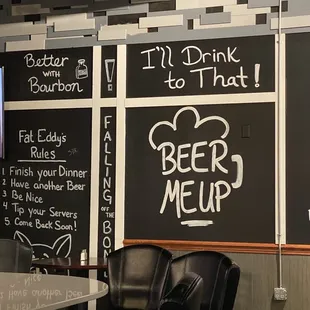 Better
with
Bourbon
I'll Drink
to That!
Fat Eddy's
Rules
1 Finish your Dinner
2 Have another Beer
3 Be Nice
4 Tip your Servers
5 Come Back Soon!
FALLING
OFF THE
BON
BEER
ME UP